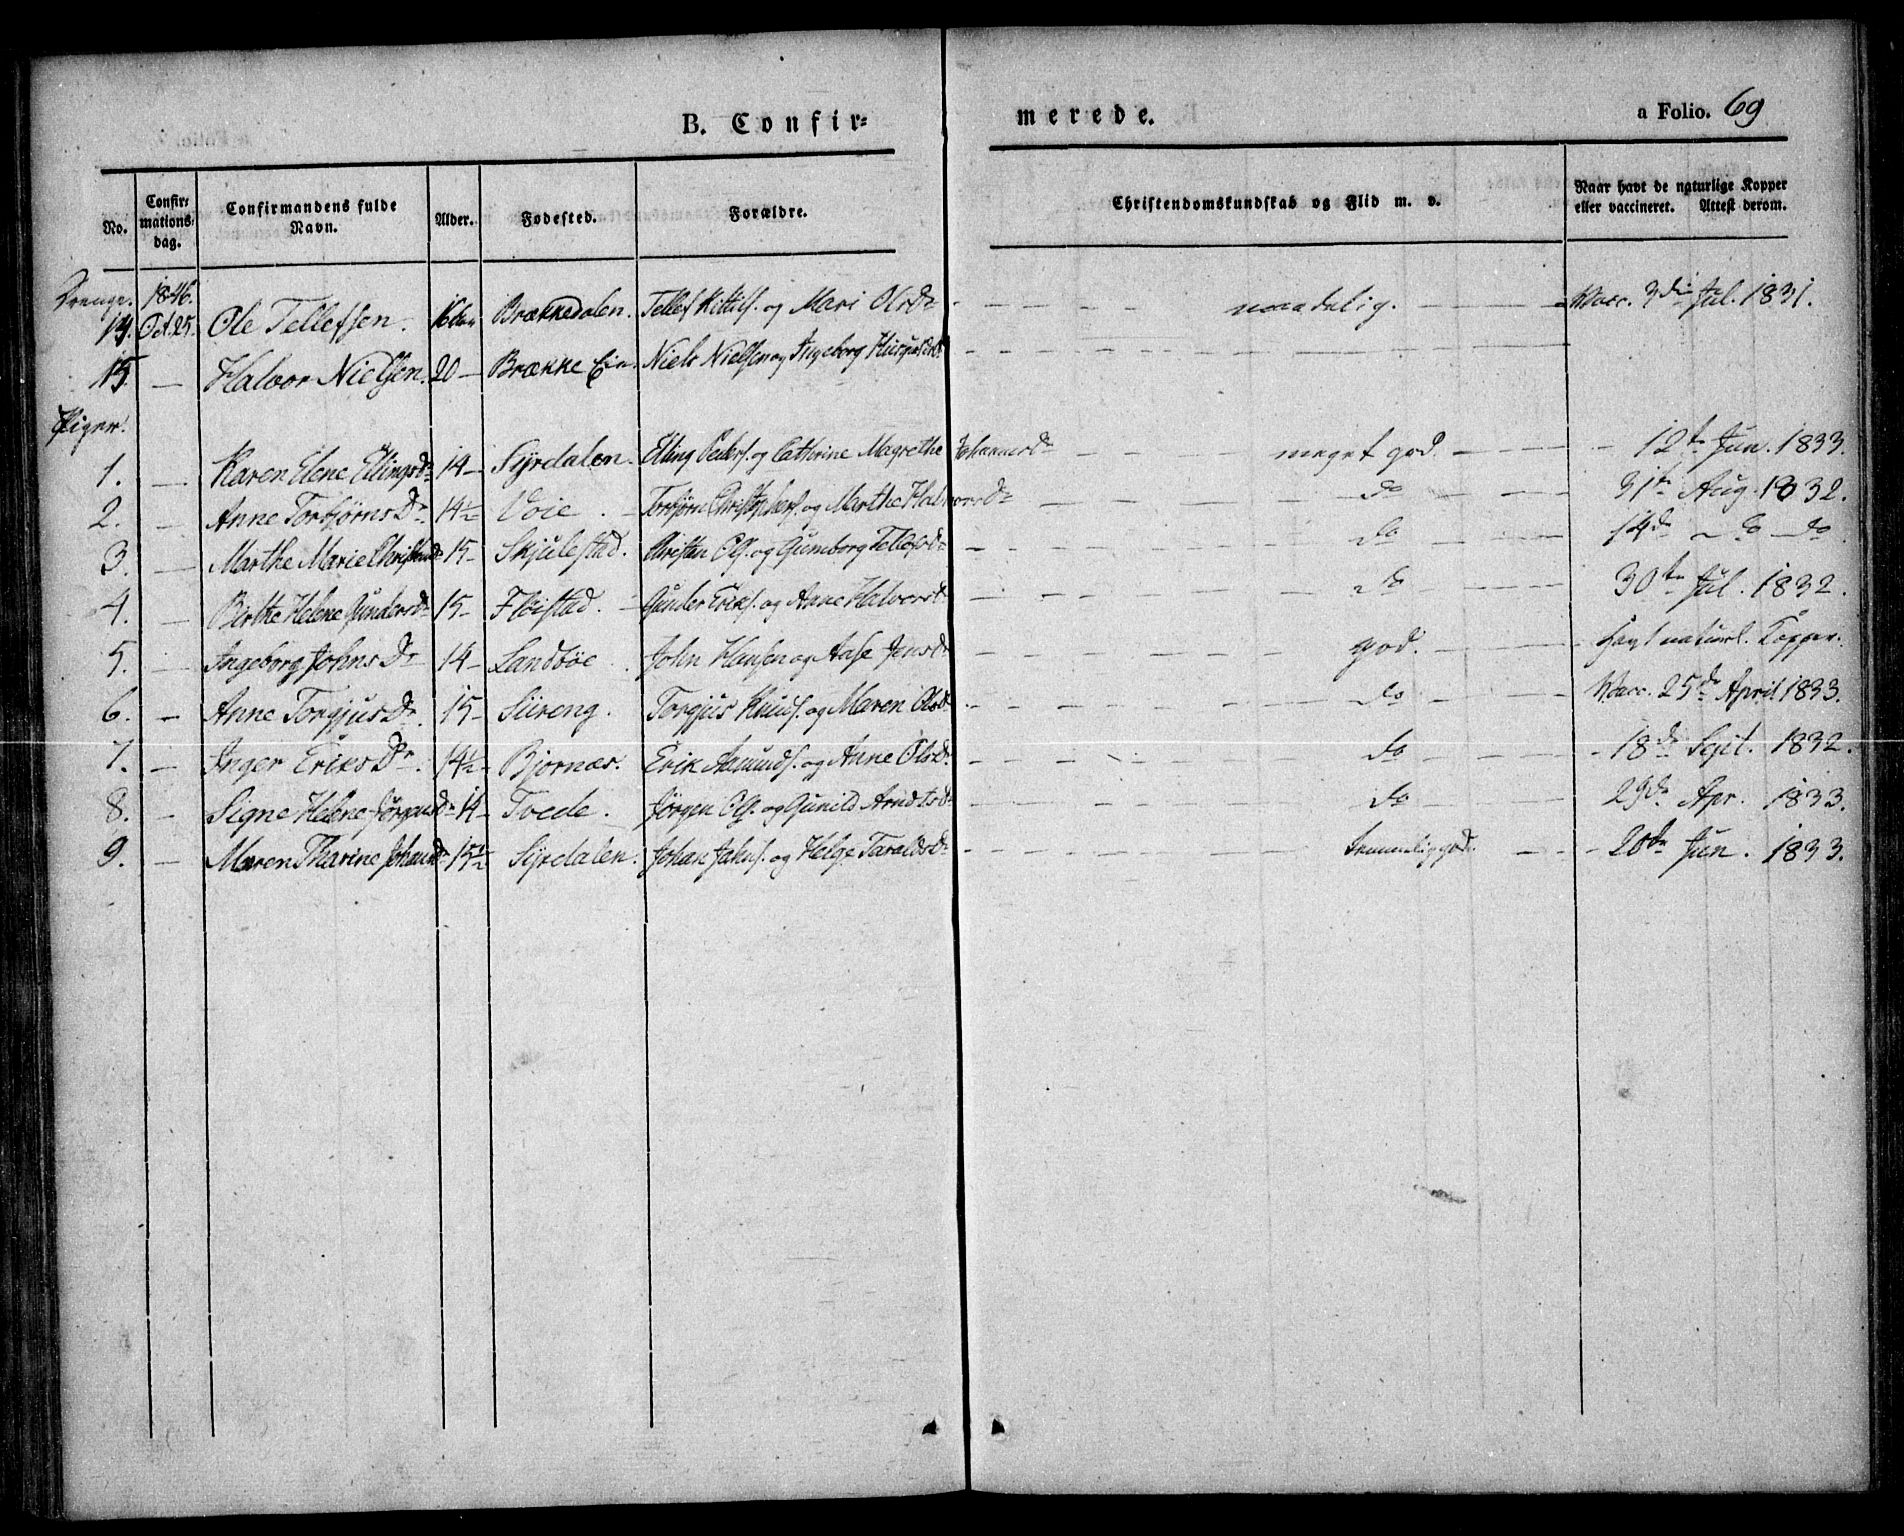 B. Confir= merede. a Folio. 69
No. Confir= mations= dag. Confirmandens fulde Navn. Alder. Fødested. Forældre. Christendomskundskab og Flid m. v. Naar havt de naturlige Kopper eller vaccineret. Attest derom.
Drenge. 1846.
14. Oct. 25. Ole Tellefsen. 16 Brækkedalen. Tellef Kittils. og Mari Olsdr maadelig. Vacc. 3die Jul. 1831.
15. — Halvor Nielsen. 20 — Brække Niels Nielsen og Ingeborg
Piger.
1. — Karen Elene Ellingsdr 14 — Syrdalen. Elling Peders. og Cathrine Magrethe Johannesdr meget god. 12te Jun. 1833.
2. — Anne Torbjørnsdr 14½ Voie. Torbjørn Christophers. og Marthe Halvorsdr do 31te Aug. 1832.
3. — Marthe Marie 15 — Skjulestad. Christen Ols. og Gunborg Tellefsdr do 14de do do
4. — Birthe Helene Gundersdr 15 — Fløistad. Gunder Eriks. og Anne Halvorsdr do 30te Jul. 1832.
5. — Ingeborg Johnsdr 14 — Landbøe. John Hansen og Aase Jensdr god. havt naturl. Kopper.
6. — Anne Torgjusdr 15 — Siireng. Torgjus Knuds. og Maren Olsdr do Vacc. 25de April 1833.
7. — Inger Eriksdr. 14½ Bjørnæs. Erik Asmunds. og Anne Olsdr. do 18de Sept. 1832.
8. — Signe Helene Jørgensdr 14 — Tvede. Jørgen Ols. og Gunild Arndtsdr do 29de Apr. 1833.
9. — Maren Tharine Johansdr 15½ Syrdalen. Johan Jahns. og Helge Taraldsdr temmelig god. 20de Jun. 1833.